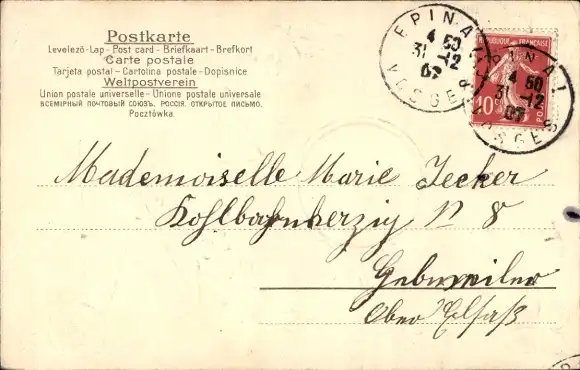 Postkarte
Levelező-Lap - Post card - Briefkaart - Brefkort
Carte postale
Tarjeta postal - Cartolina postale - Dopisnice
Weltpostverein
Union postale universelle - Unione postale universale
ВСЕМІРНЫЙ ПОЧТОВЫЙ СОЮЗЪ. РОССІЯ. ОТКРЫТОЕ ПИСЬМО.
Pocztówka
EPINAL
4 50
31 -12
07
VOSGES
REPUBLIQUE FRANÇAISE
10
EPINAL
4 50
31 -12
07
VOSGES
Mademoiselle Marie Jecker
Kohlbahnherzig N 8
Gebweiler
Ober Elsaß